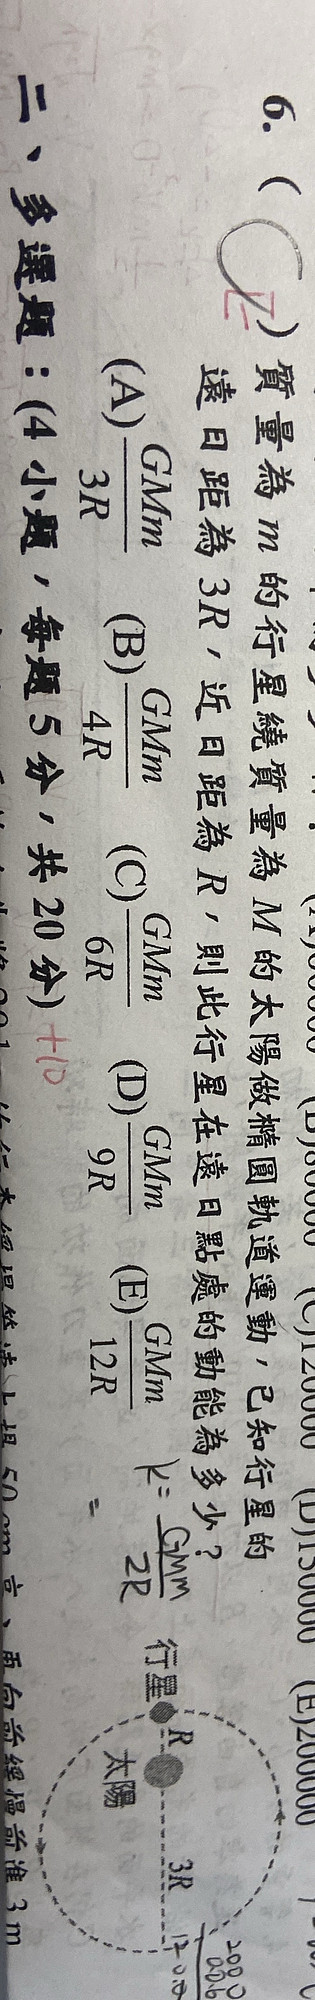 (B)80000 (C)120000 (D)150000 (E)200000
6. ( C E ) 質量為 m 的行星繞質量為 M 的太陽做橢圓軌道運動，已知行星的
遠日距為 3R，近日距為 R，則此行星在遠日點處的動能為多少？
(A) GMm/3R (B) GMm/4R (C) GMm/6R (D) GMm/9R (E) GMm/12R
K = GMm/2R
=
行星 R 3R
太陽
二、多選題：(4 小題，每題 5 分，共 20 分) +10